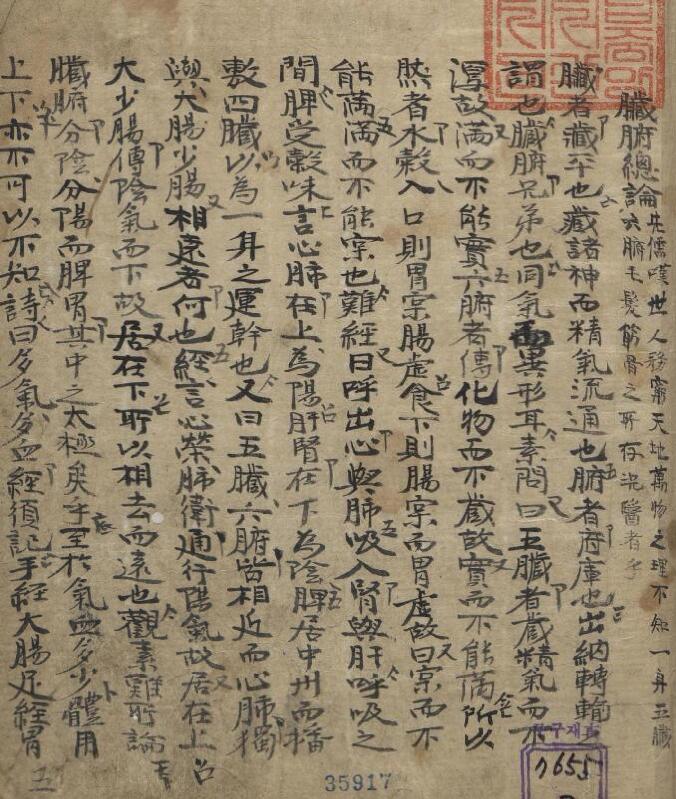 臟腑總論 先儒嘆世人務窮天地萬物之理不知一身五臟
六腑毛髮筋骨之所存況醫者乎
臟者藏乎也藏諸神而精氣流通也腑者府庫也出納轉輸之
謂也臟腑兄弟也同氣而異形耳素問曰五臟者藏精氣而不
瀉故滿而不能實六腑者傳化物而不藏故實而不能滿所以
然者水穀入口則胃宲腸虛食下則腸宲而胃虛故曰宲而不
能滿滿而不能宲也難經曰呼出心與肺吸入腎與肝呼吸之
間脾受穀味言心肺在上為陽肝腎在下為陰脾居中州而播
敷四臟以為一身之運幹也又曰五臟六腑皆相近而心肺獨
與大腸少腸相遠者何也經言心榮肺衛通行陽氣故居在上
大少腸傳陰氣而下故居在下所以相去而遠也觀素難所論
臟腑分陰分陽而脾胃其中之太極矣乎至於氣血多少體用
上下亦不可以不知詩曰多氣多血經須記手經大腸足經胃
35917
7655